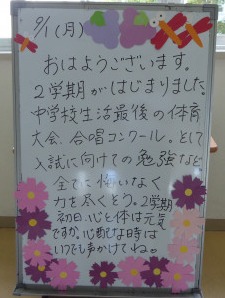 9/1(月)
おはようございます。
2学期がはじまりました。
中学校生活最後の体育
大会、合唱コンクール。として
入試に向けての勉強など
全てに悔いなく
力を尽くそう。2学期
初日、心と体は元気
ですか。心配な時は
いつでも声かけてね。